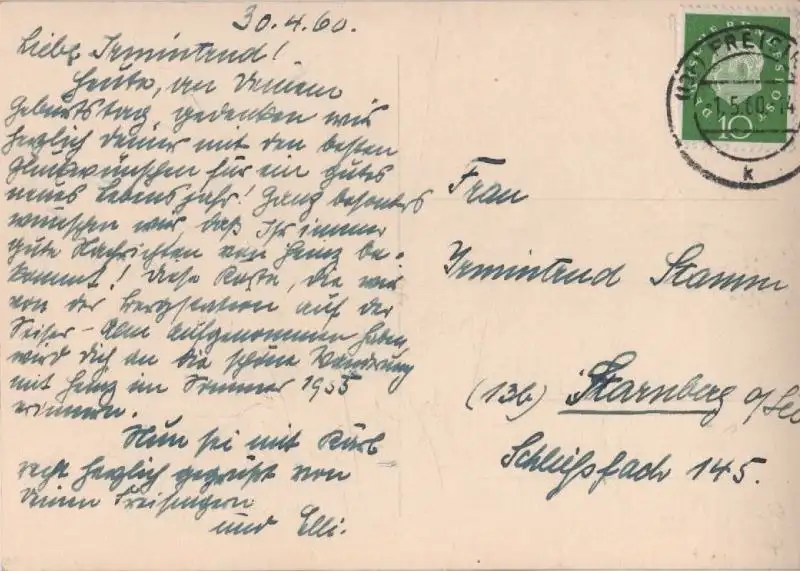 30.4.60.
Liebe Irmintrud!
Heute, an Deinem
Geburtstag, gedenken wir
herzlich Deiner mit den besten
Glückwünschen für ein gutes
neues Lebensjahr! Ganz besonders
wünschen wir, daß Ihr immer
gute Nachrichten von Heinz be-
kommt! Diese Karte, die wir
von der Bergstation auf der
Seiser-Alm aufgenommen haben,
wird Dich an die schöne Wanderung
mit Heinz im Sommer 1955
erinnern.
Nun sei mit
recht herzlich gegrüßt von
Deinen Freisingern
und Elli.
DEUTSCHE BUNDESPOST
10
(13b) FREISI
-1.5.60.-14
k
Frau
Irmintrud Stamm
(13b) Starnberg a/See
Schließfach 145.